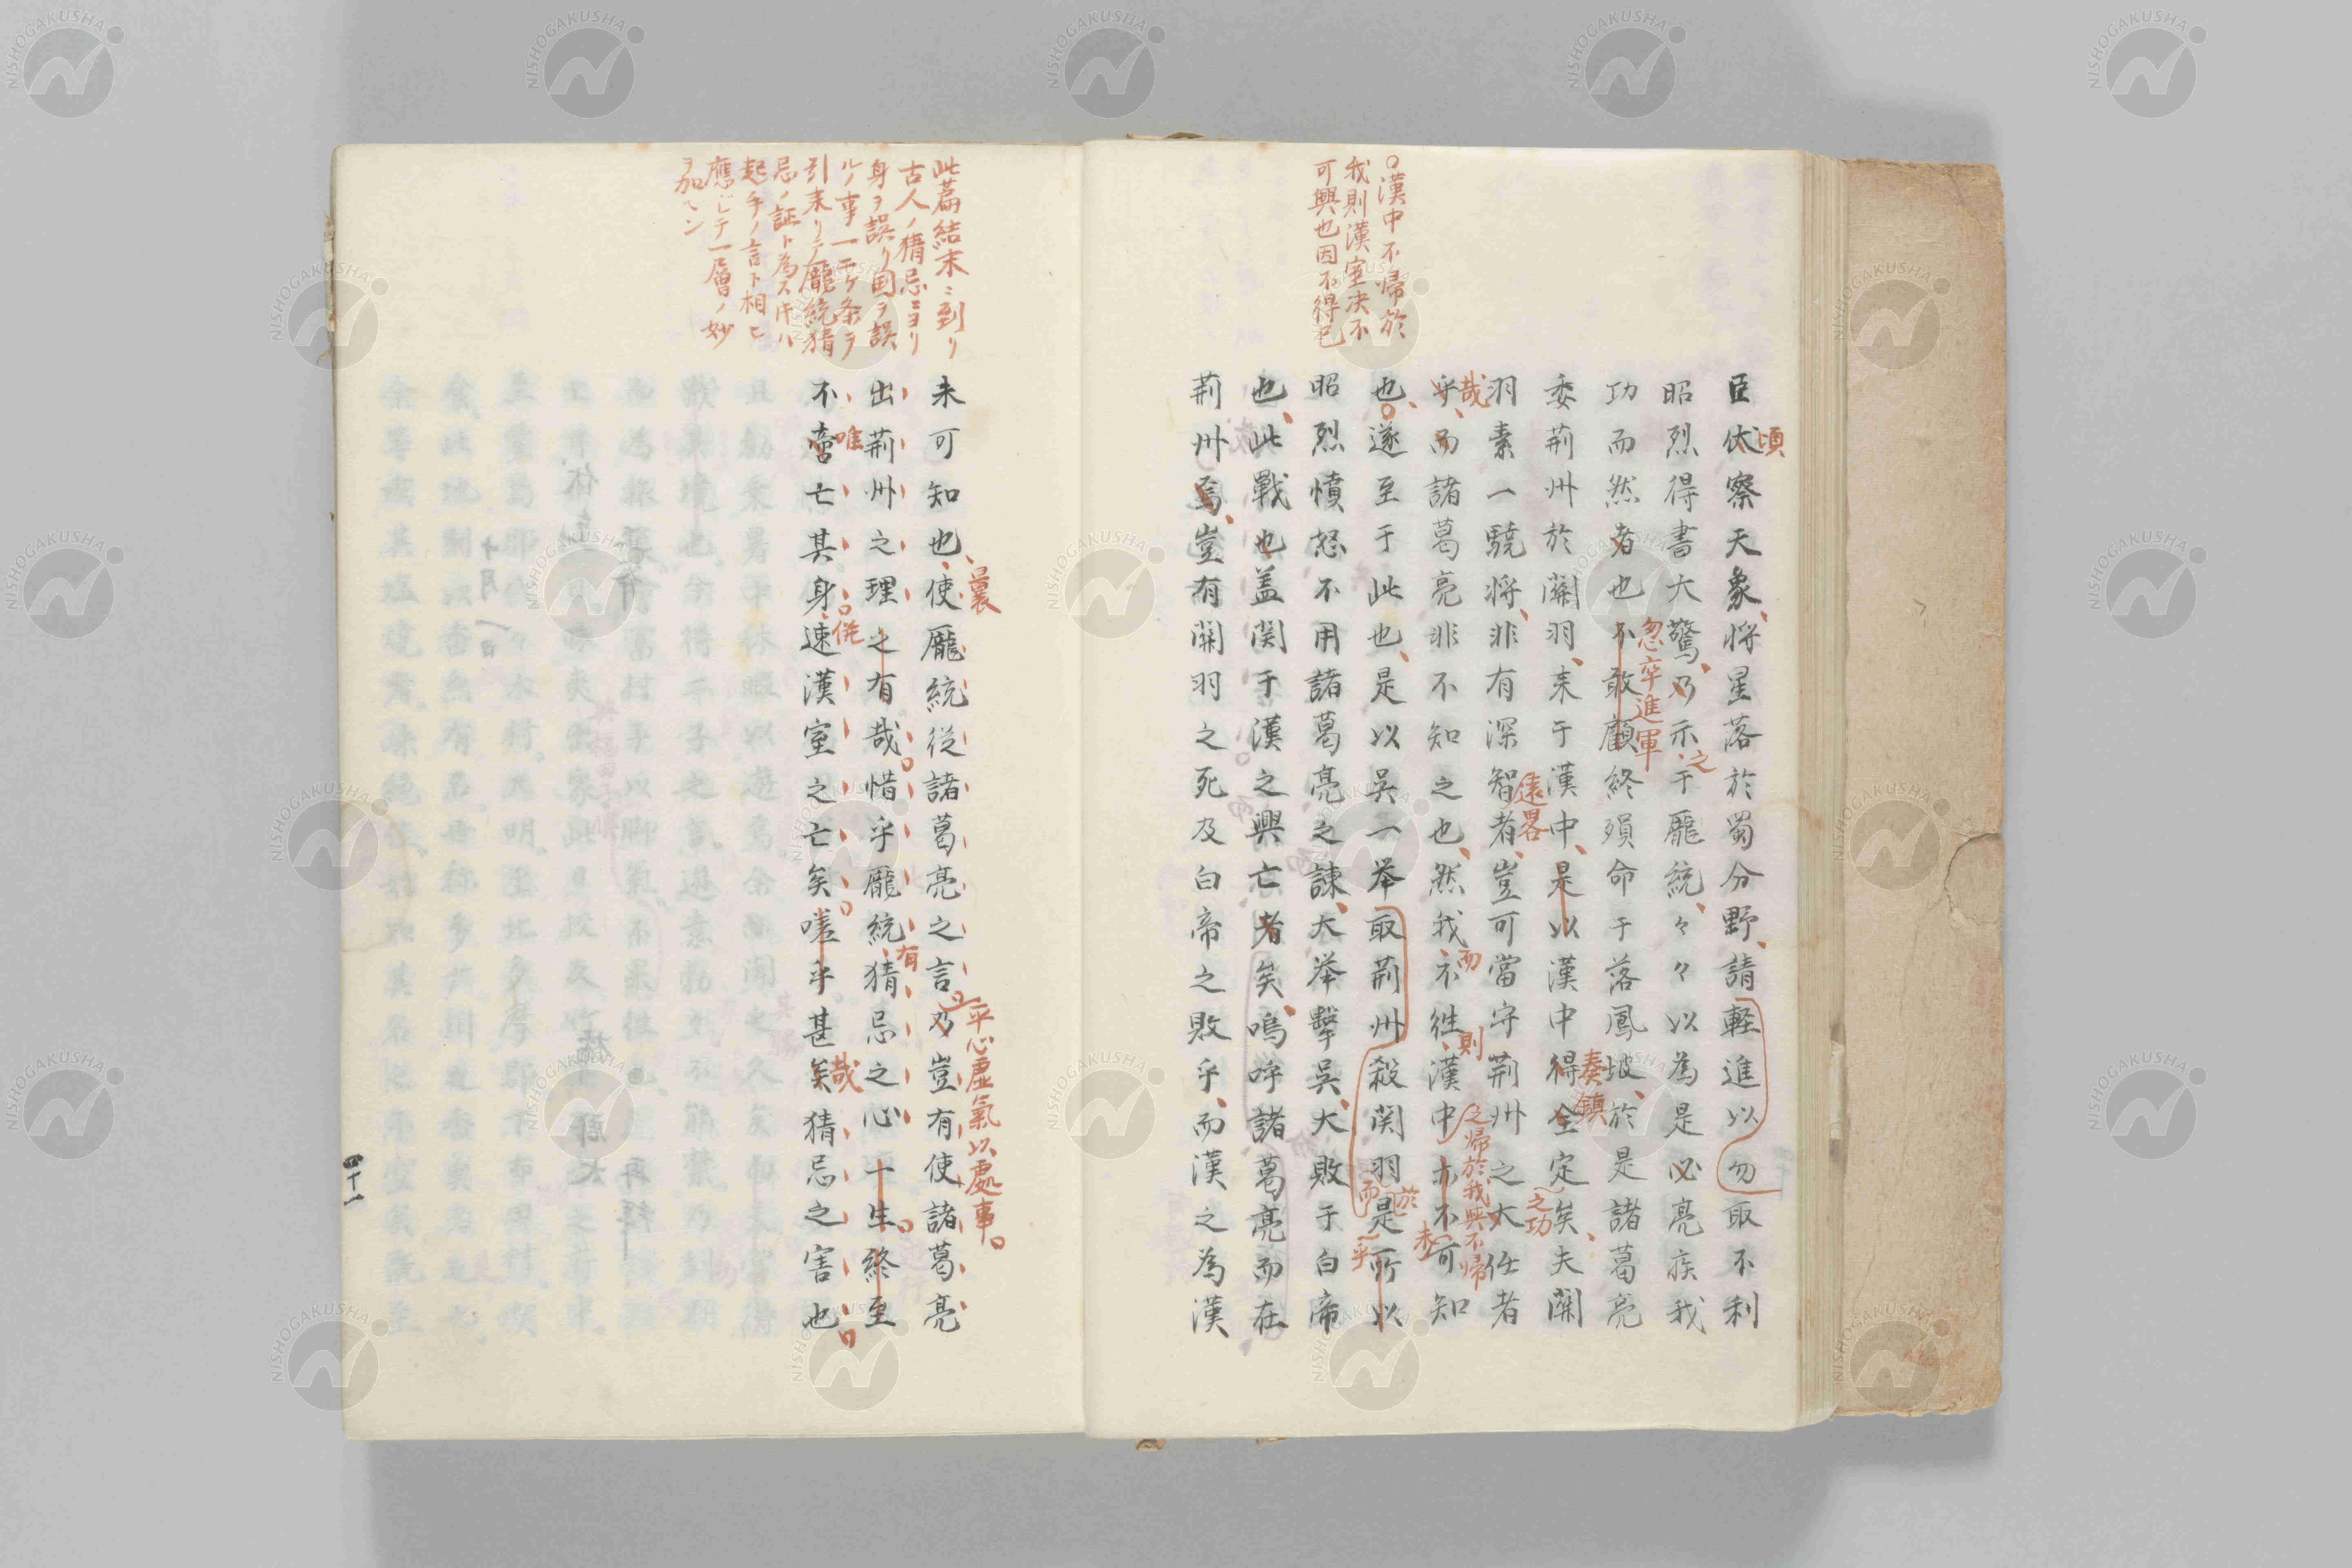 〇漢中不帰於
我則漢室决不
可興也因不得已
臣伏察天象、将星落於蜀分野、請軽進以勿取不利
頃
昭烈得書大驚、乃示于龐統、々々以為是必亮疾我
之
功而然者也不敢顧終殞命于落鳳坡、於是諸葛亮
忽卒進軍
委荊州於關羽、来于漢中、是以漢中得全定矣、夫關
奏鎮
之功
羽素一驍将、非有深智者、豈可當守荊州之大任者
遠畧
乎、而諸葛亮非不知之也、然我不徃、漢中亦不可知
哉
而
則
之帰於我與不帰
未
也、遂至于此也、是以吳一举取荊州殺関羽是所以
而
於
乎
昭烈憤怒不用諸葛亮之諫、大举擊吳、大敗于白帝
也、此戰也盖関于漢之興亡者矣、嗚呼諸葛亮而在
荊州焉、豈有關羽之死及白帝之敗乎、而漢之為漢
此篇結末ニ到リ
古人ノ猜忌ニヨリ
身ヲ誤リ国ヲ誤
ルノ事一二ケ条ヲ
引来リテ龐統猜
忌ノ証ト為ス片ハ
起手ノ言ト相ヒ
應シテ一層ノ妙
ヲ加ヘン
未可知也、使龐統從諸葛亮之言、乃豈有使諸葛亮
曩
平心虚氣以處事。
出荊州之理之有哉惜乎龐統猜忌之心一生終至
有
不啻亡其身速漢室之亡矣嗟乎甚矣猜忌之害也
唯
俾
哉
四十一